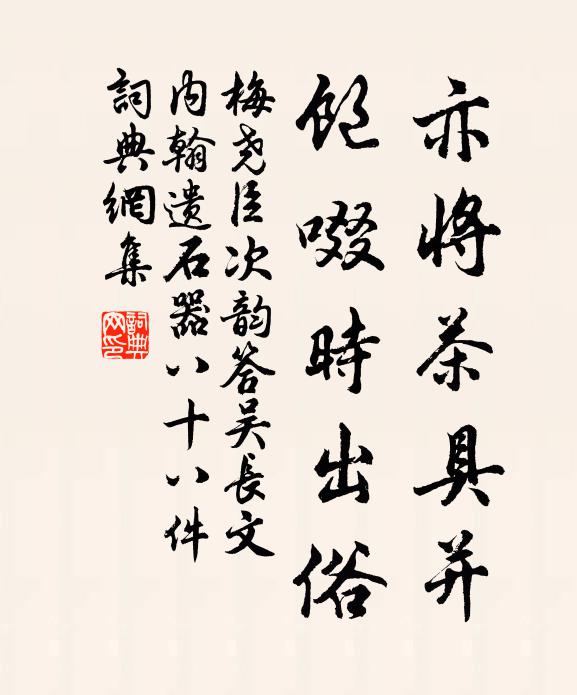 亦將茶具并
飽啜時出俗
梅堯臣次韵答吴長文
内翰遗石器八十八件
詞典網集
詞典
网印